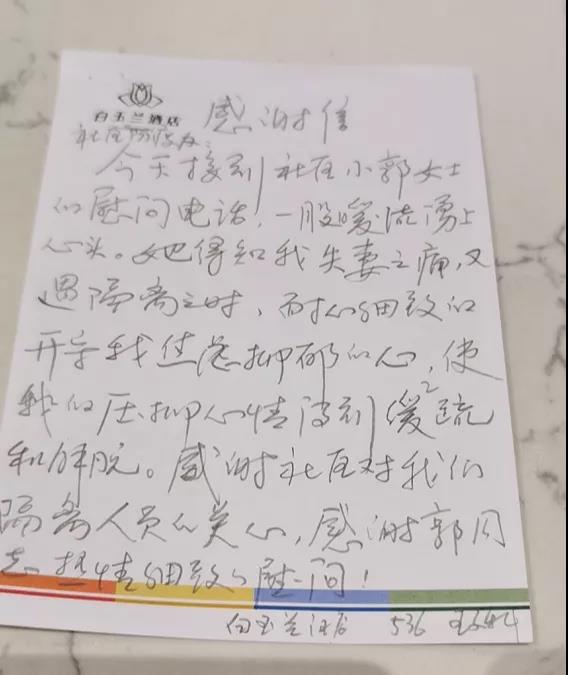 白玉兰酒店
感谢信
社区防疫办：
今天接到社区小郭女士
的慰问电话，一股暖流涌上
心头。她得知我失妻之痛，又
遇隔离之时，而耐心细致的
开导我悲伤抑郁的心，使
我的压抑心情得到缓疏
和解脱。感谢社区对我们
隔离人员的关心，感谢郭同
志热情细致的慰问！
白玉兰酒店 536